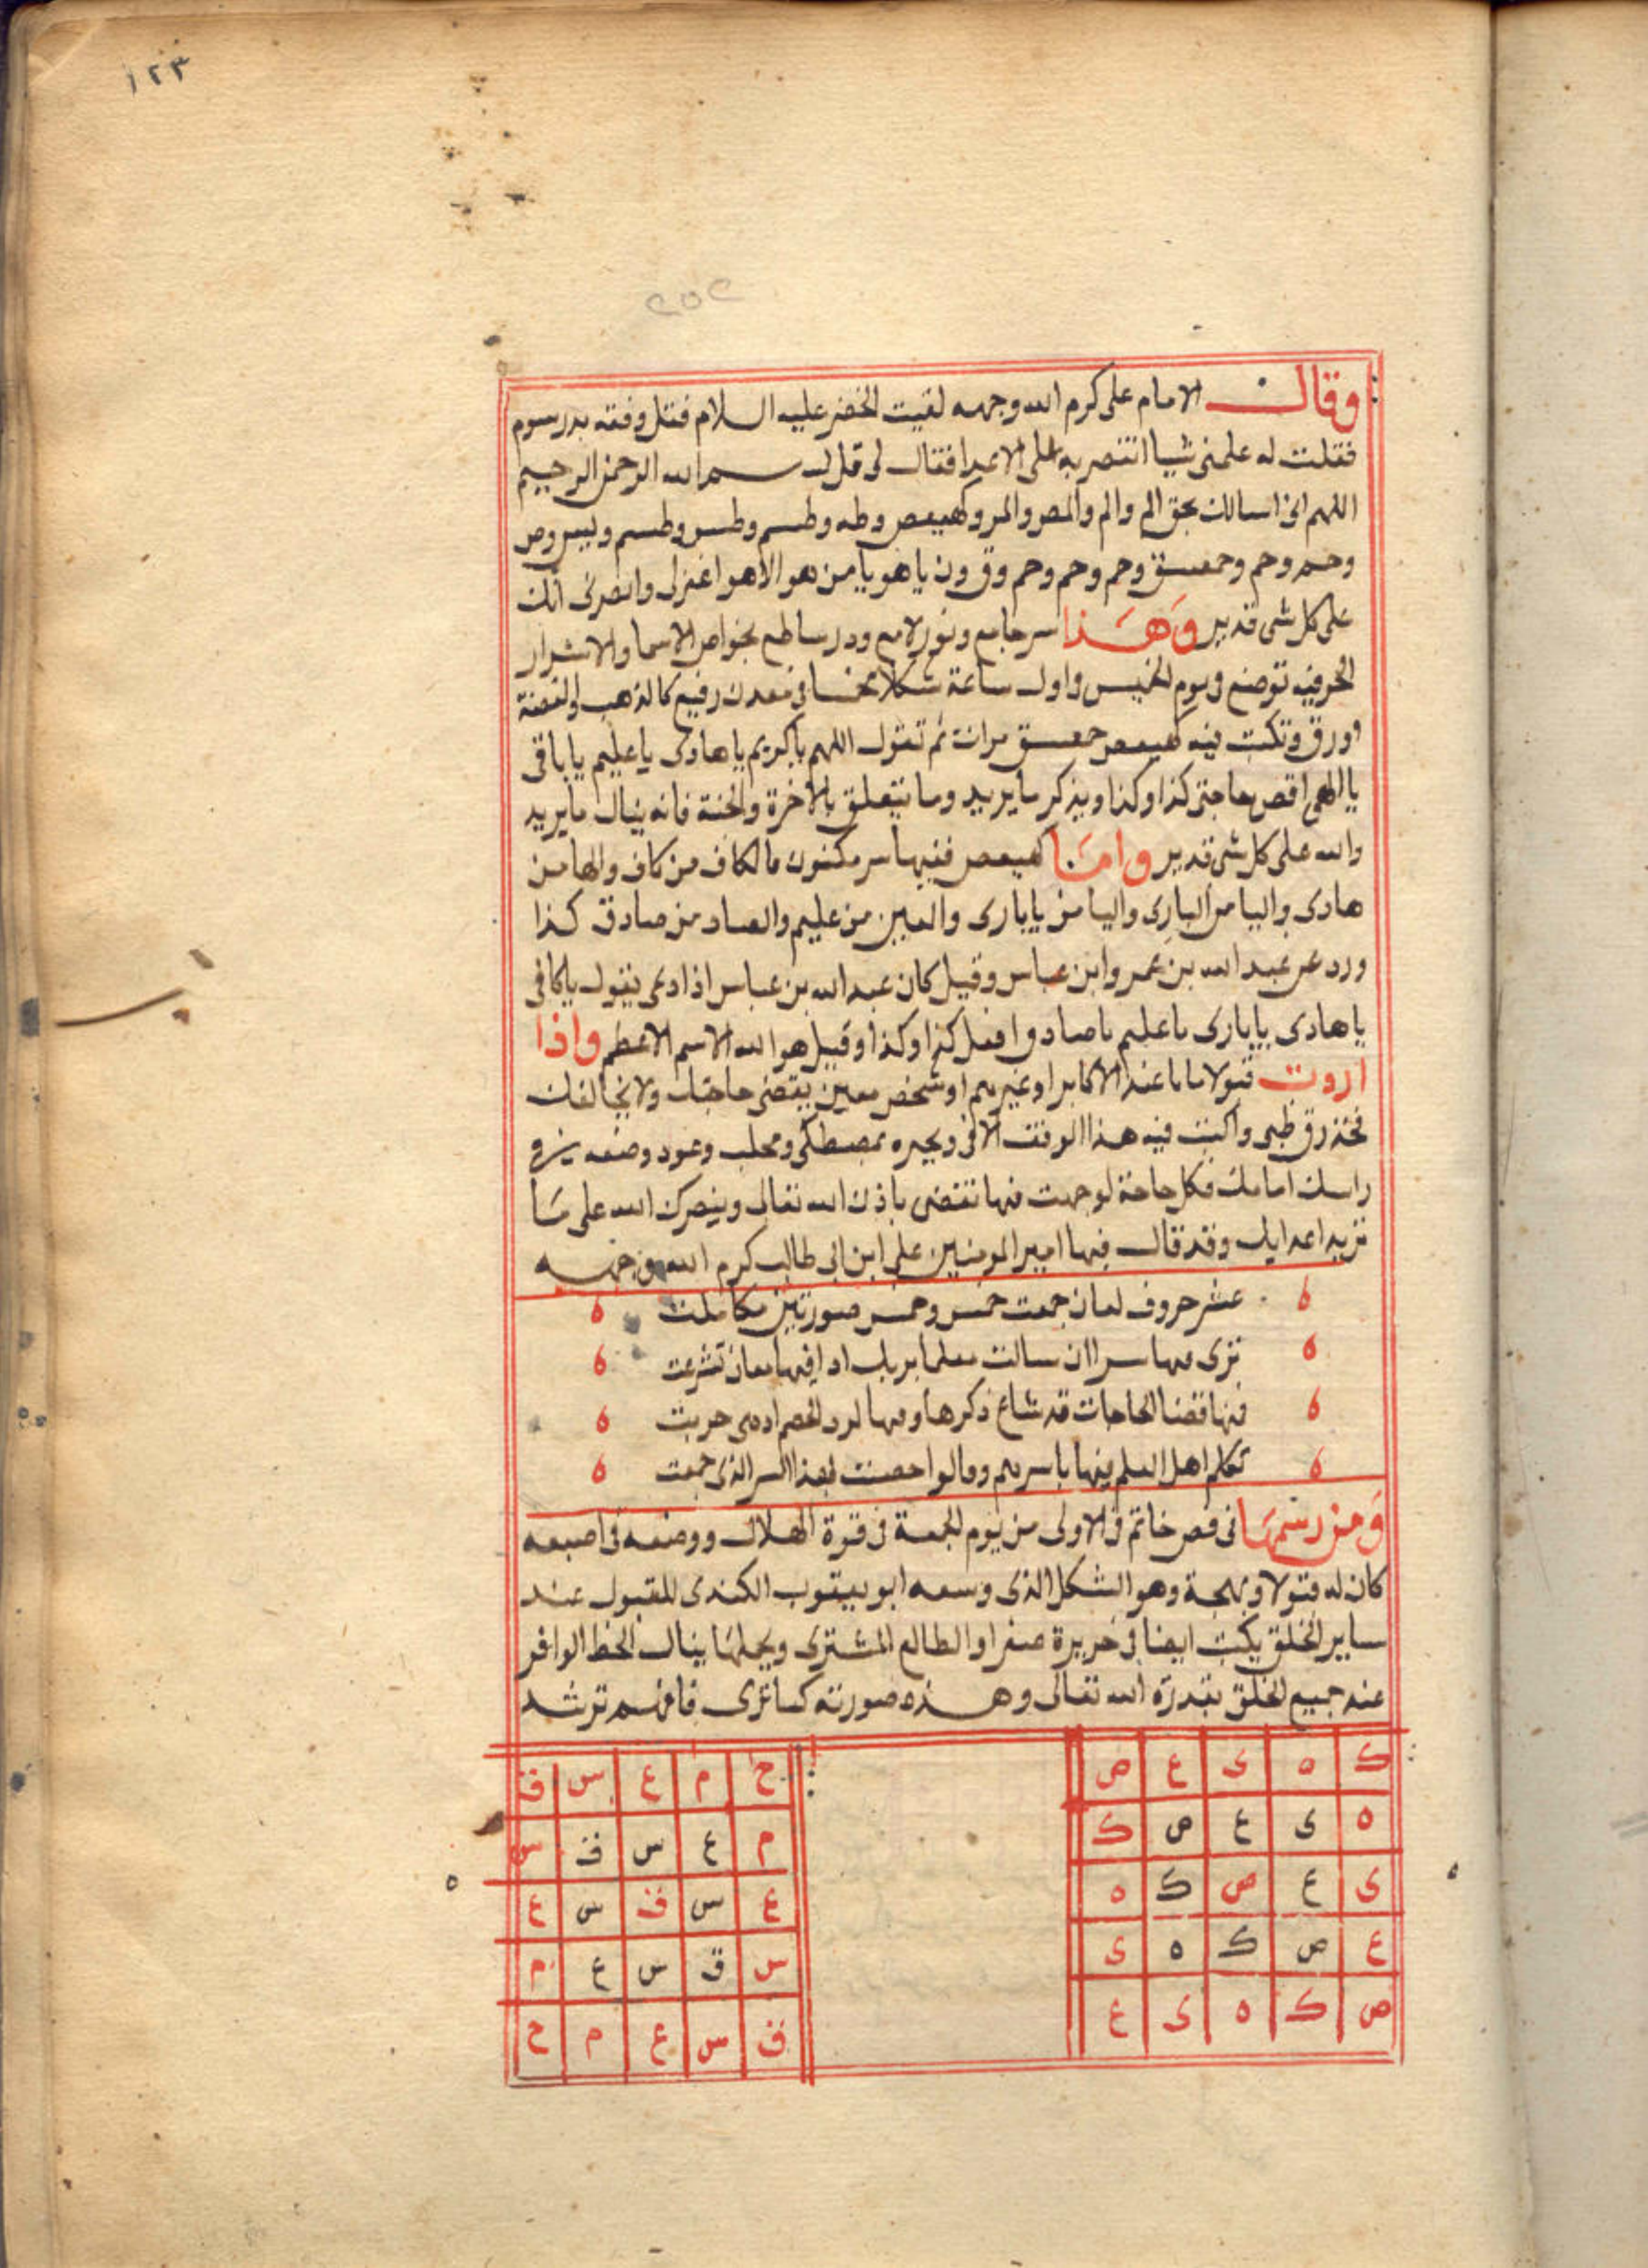 ١٢٣
٢٥٢
وقال الامام على كرم الله وجهه لقيت الخضر عليه السلام قبل وقعه بدر بيوم
فقلت له علمنى شيا انتصر به على الاعدا فقال لى قل بسم الله الرحمن الرحيم
اللهم انى اسالك بحق الم والم والمص والمر وكهيعص وطه وطسم وطس وطسم ويس وص
وحم وحم وحمعسق وحم وحم وحم وق ون يا هو يا من هو الا هو اغفرلى وانصرنى انك
على كل شى قدير وهذا سر جامع ونور لامع ودر ساطع بخواص الاسما والاسرار
الحرفيه توضع فى يوم الخميس واول ساعة شكلا مخمسا فى معدن رفيع كالذهب او الفضة
اورق وتكتب فيه كهيعص حمعسق مرات ثم تقول اللهم يا كريم يا هادى يا عليم يا باقى
يا الهى اقض حاجتى كذا وكذا ويذكر ما يريد وما يتعلق بالاخرة والجنة فانه ينال ما يريد
والله على كل شى قدير واما كهيعص ففيها سر مكنون فالكاف من كاف والها من
هادى واليا من البارى واليا من يا بارى والعين من عليم والصاد من صادق كذا
ورد عن عبد الله بن عمر وابن عباس وقيل كان عبد الله بن عباس اذا دعى يقول يا كافى
يا هادى يا بارى يا عليم يا صادق افعل كذا وكذا وقيل هو الله الاسم الاعظم واذا
اردت قبولا تاما عند الاكابر او غيرهم او شخص معين يقضى حاجتك ولا يخالفك
فخذ رق ظبى واكتب فيه هذا الوفق الاتى وبخره بمصطكى ومحلب وعود وضعه فى
راسك امامك فكل حاجة توجهت فيها تقضى باذن الله تعالى وينصرك الله على من
تريد اعدايك وقد قال فيها امير المومنين على ابن ابى طالب كرم الله وجهه
٥ عشر حروف لمعان جمعت خمس وخمس صورتين تكاملت ٥
٥ ترى فيها سرا ان سالت معلما يريك اذا فيها معان تشرعت ٥
٥ فيها قضا الحاجات قد شاع ذكرها وفيها لرد الخصم حربت ٥
٥ تكلم اهل العلم فيها باسرهم وقالوا حصنت لهذا السر الذى جمعت ٥
ومن رسمها فى فص خاتم فى الاولى من يوم الجمعة فى قوة الهلال ووضعه فى اصبعه
كان له قبولا وبهجة وهو الشكل الذى وسعه ابو يعقوب الكندى للقبول عند
ساير الخلق يكتب ايضا فى حريرة صفرا والطالع المشترى ويحملها ينال الحظ الوافر
عند جميع الخلق بقدرة الله تعالى وهذه صورته كما ترى فافهم ترشد
ك ه ى ع ص ح م ع س ق
ه ى ع ص ك م ع س ق س
ى ع ص ك ه ع س ق س ع
ع ص ك ه ى س ق س ع م
ص ك ه ى ع ق س ع م ح